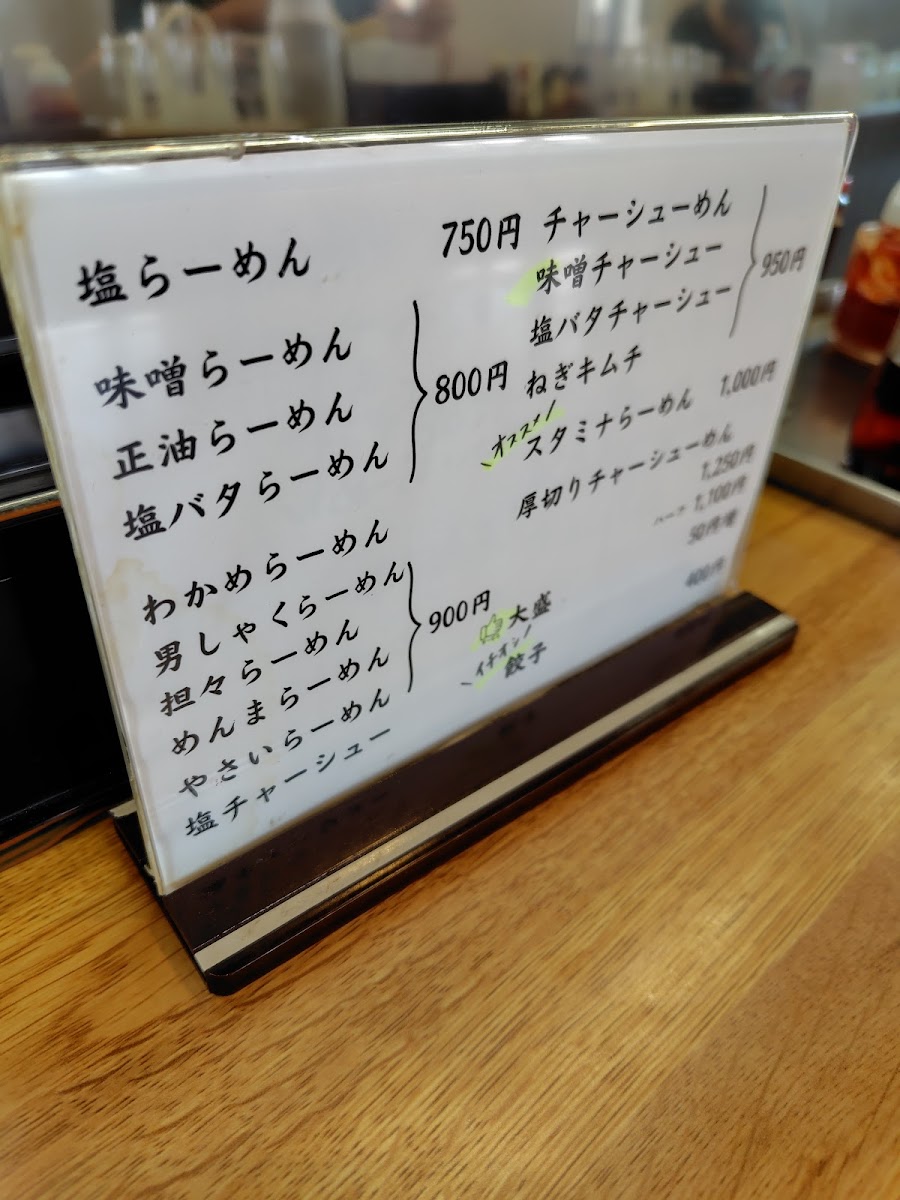 塩らーめん 750円
味噌らーめん
正油らーめん
塩バタらーめん
800円
わかめらーめん
男しゃくらーめん
担々らーめん
めんまらーめん
やさいらーめん
塩チャーシュー
900円
チャーシューめん
味噌チャーシュー
塩バタチャーシュー
950円
ねぎキムチ
オススメ!
スタミナらーめん 1,000円
厚切りチャーシューめん
1,250円
ハーフ 1,100円
大盛 50円増
イチオシ!
餃子 400円